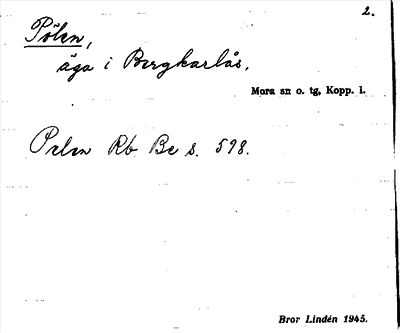 2.
Pölen,
äga i Bergkarlås.
Mora sn o. tg, Kopp. l.
Pelen Rb Be s. 598.
Bror Lindén 1945.